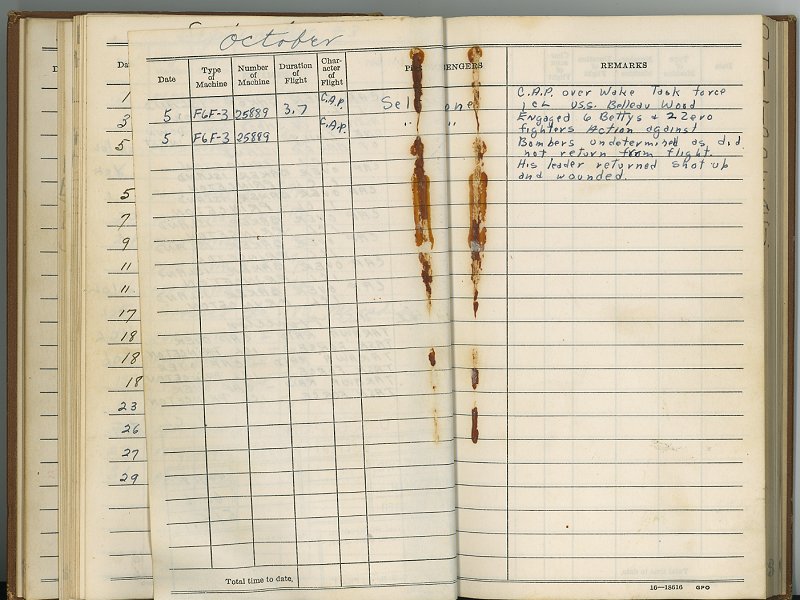 October
Date
Type of Machine
Number of Machine
Duration of Flight
Character of Flight
ENGERS
REMARKS
5 F6F-3 25889 3.7 C.A.P. one
5 F6F-3 25889 C.A.P. " "
C.A.P. over Wake Task force
USS. Belleau Wood
Engaged 6 Bettys & 2 Zero
fighters Action against
Bombers undetermined as did
not return from flight.
His leader returned shot up
and wounded.
1
3
5
5
7
9
11
11
17
18
18
18
23
26
27
29
Total time to date,
16—18616 GPO